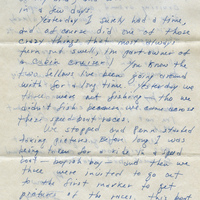 in a few days.
Yesterday I sure had a time,
and of course did one of those
crazy things that most always
turn out swell, I'm part owner of
a You know the
two fellows I've been going around
with for a long time. Yesterday we
three went out fishing — tho we
didn't fish because we came across
these speed-boat races.
We stopped and Penn started
taking pictures. Before long I was
taking them for a ride in a speed
boat — boy — and then we
three were invited to go out
to the first marker to get
pictures of the races, this boat